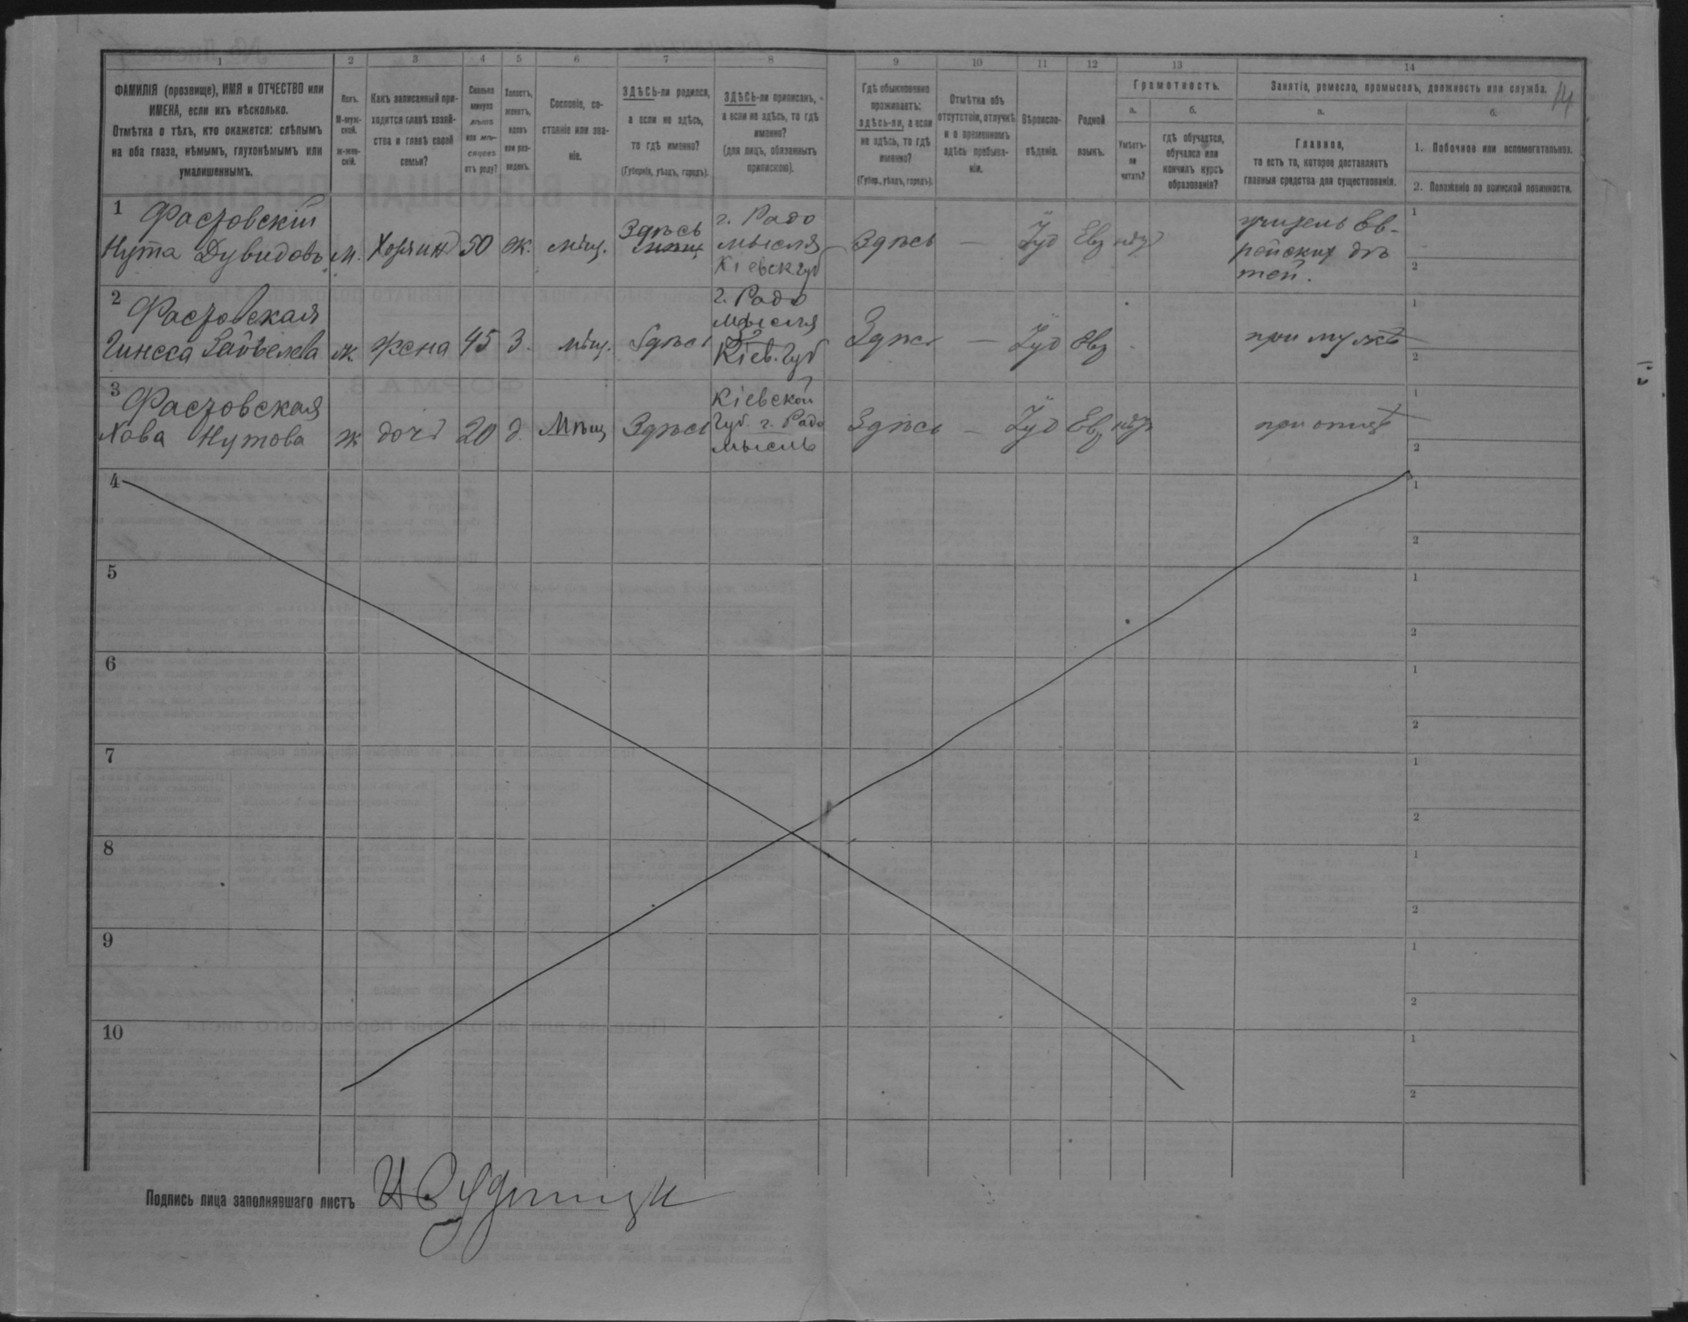 1
2
3
4
5
6
7
8
9
10
11
12
13
14
14
ФАМИЛІЯ (прозвище), ИМЯ и ОТЧЕСТВО или
ИМЕНА, если ихъ нѣсколько.
Отмѣтка о тѣхъ, кто окажется: слѣпымъ
на оба глаза, нѣмымъ, глухонѣмымъ или
умалишеннымъ.
Полъ.
М-муж-
ской.
ж-жен-
скій.
Какъ записанный при-
ходится главѣ хозяй-
ства и главѣ своей
семьи?
Сколько
минуло
лѣтъ
или мѣ-
сяцевъ
отъ роду?
Холостъ,
женатъ,
вдовъ
или раз-
веденъ.
Сословіе, со-
стояніе или зва-
ніе.
ЗДѢСЬ-ли родился,
а если не здѣсь,
то гдѣ именно?
(Губернія, уѣздъ, городъ).
ЗДѢСЬ-ли приписанъ,
а если не здѣсь, то гдѣ
именно?
(для лицъ, обязанныхъ
припискою).
Гдѣ обыкновенно
проживаетъ:
здѣсь-ли, а если
не здѣсь, то гдѣ
именно?
(Губер., уѣздъ, городъ).
Отмѣтка объ
отсутствіи, отлучкѣ
и о временномъ
здѣсь пребыва-
ніи.
Вѣроиспо-
вѣданіе.
Родной
языкъ.
Грамотность.
а.
Умѣетъ-
ли
читать?
б.
гдѣ обучается,
обучался или
кончилъ курсъ
образованія?
Занятіе, ремесло, промыселъ, должность или служба.
а.
Главное,
то есть то, которое доставляетъ
главныя средства для существованія.
б.
1. Побочное или вспомогательное.
2. Положеніе по воинской повинности.
1 Фастовскій
Нута Дувидовъ м. Хозяинъ 50 ж. мѣщ. Здѣсь г. Радо
мысля
Кіевск губ Здѣсь — Іуд Евр нѣтъ учитель Ев-
рейскихъ дѣ
тей.
1
2
2 Фастовская
ж жена 45 З. мѣщ. Здѣсь г. Радо
мысля
Кіев. Губ Здѣсь — Іуд Евр - при мужѣ
1
2
3 Фастовская
Хава Нутова ж дочь 20 д. Мѣщ Здѣсь Кіевской
Губ. г. Радо
мысль Здѣсь — Іуд Евр нѣтъ при отцѣ
1
2
4
1
2
5
1
2
6
1
2
7
1
2
8
1
2
9
1
2
10
1
2
Подпись лица заполнявшаго листъ